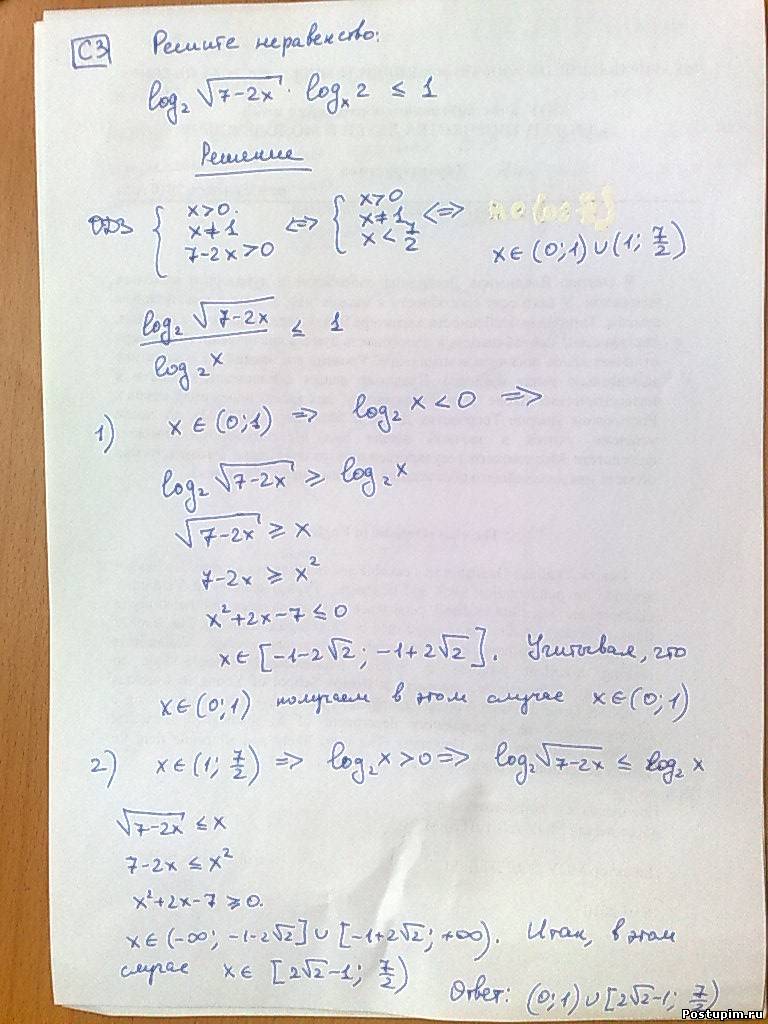 C3 Решите неравенство:
log₂ √(7-2x) · logₓ 2 ≤ 1
Решение
ОДЗ { x>0. x≠1 7-2x>0 <=> { x>0 x≠1 x<7/2 <=>
x∈(0;1)∪(1; 7/2)
log₂ √(7-2x) / log₂ x ≤ 1
1) x∈(0;1) => log₂ x < 0 =>
log₂ √(7-2x) ≥ log₂ x
√(7-2x) ≥ x
7-2x ≥ x²
x²+2x-7 ≤ 0
x∈[-1-2√2; -1+2√2]. Учитывая, что
x∈(0;1) получаем в этом случае x∈(0;1)
2) x∈(1; 7/2) => log₂ x>0 => log₂ √(7-2x) ≤ log₂ x
√(7-2x) ≤ x
7-2x ≤ x²
x²+2x-7 ≥ 0.
x∈(-∞; -1-2√2]∪[-1+2√2; +∞). Итак, в этом
случае x∈[2√2-1; 7/2)
Ответ: (0;1)∪[2√2-1; 7/2)
Postupim.ru